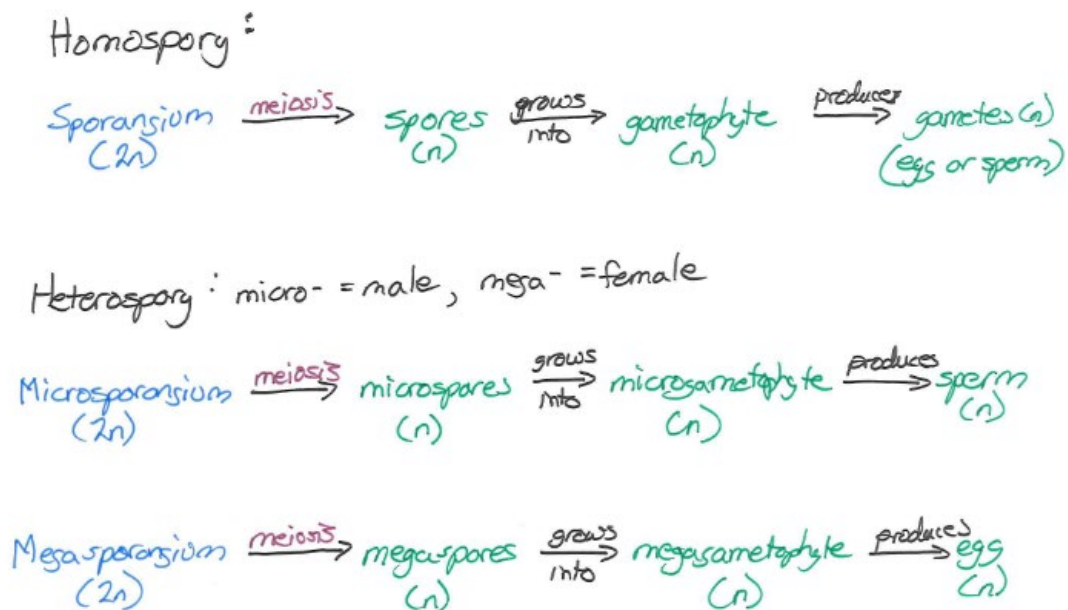 Homospory:
Sporangium meiosis spores grows into gametophyte produces gametes (n)
(2n) (n) (n) (egg or sperm)
Heterospory: micro- = male, mega- = female
Microsporangium meiosis microspores grows into microgametophyte produces sperm
(2n) (n) (n) (n)
Megasporangium meiosis megaspores grows into megagametophyte produces egg
(2n) (n) (n) (n)